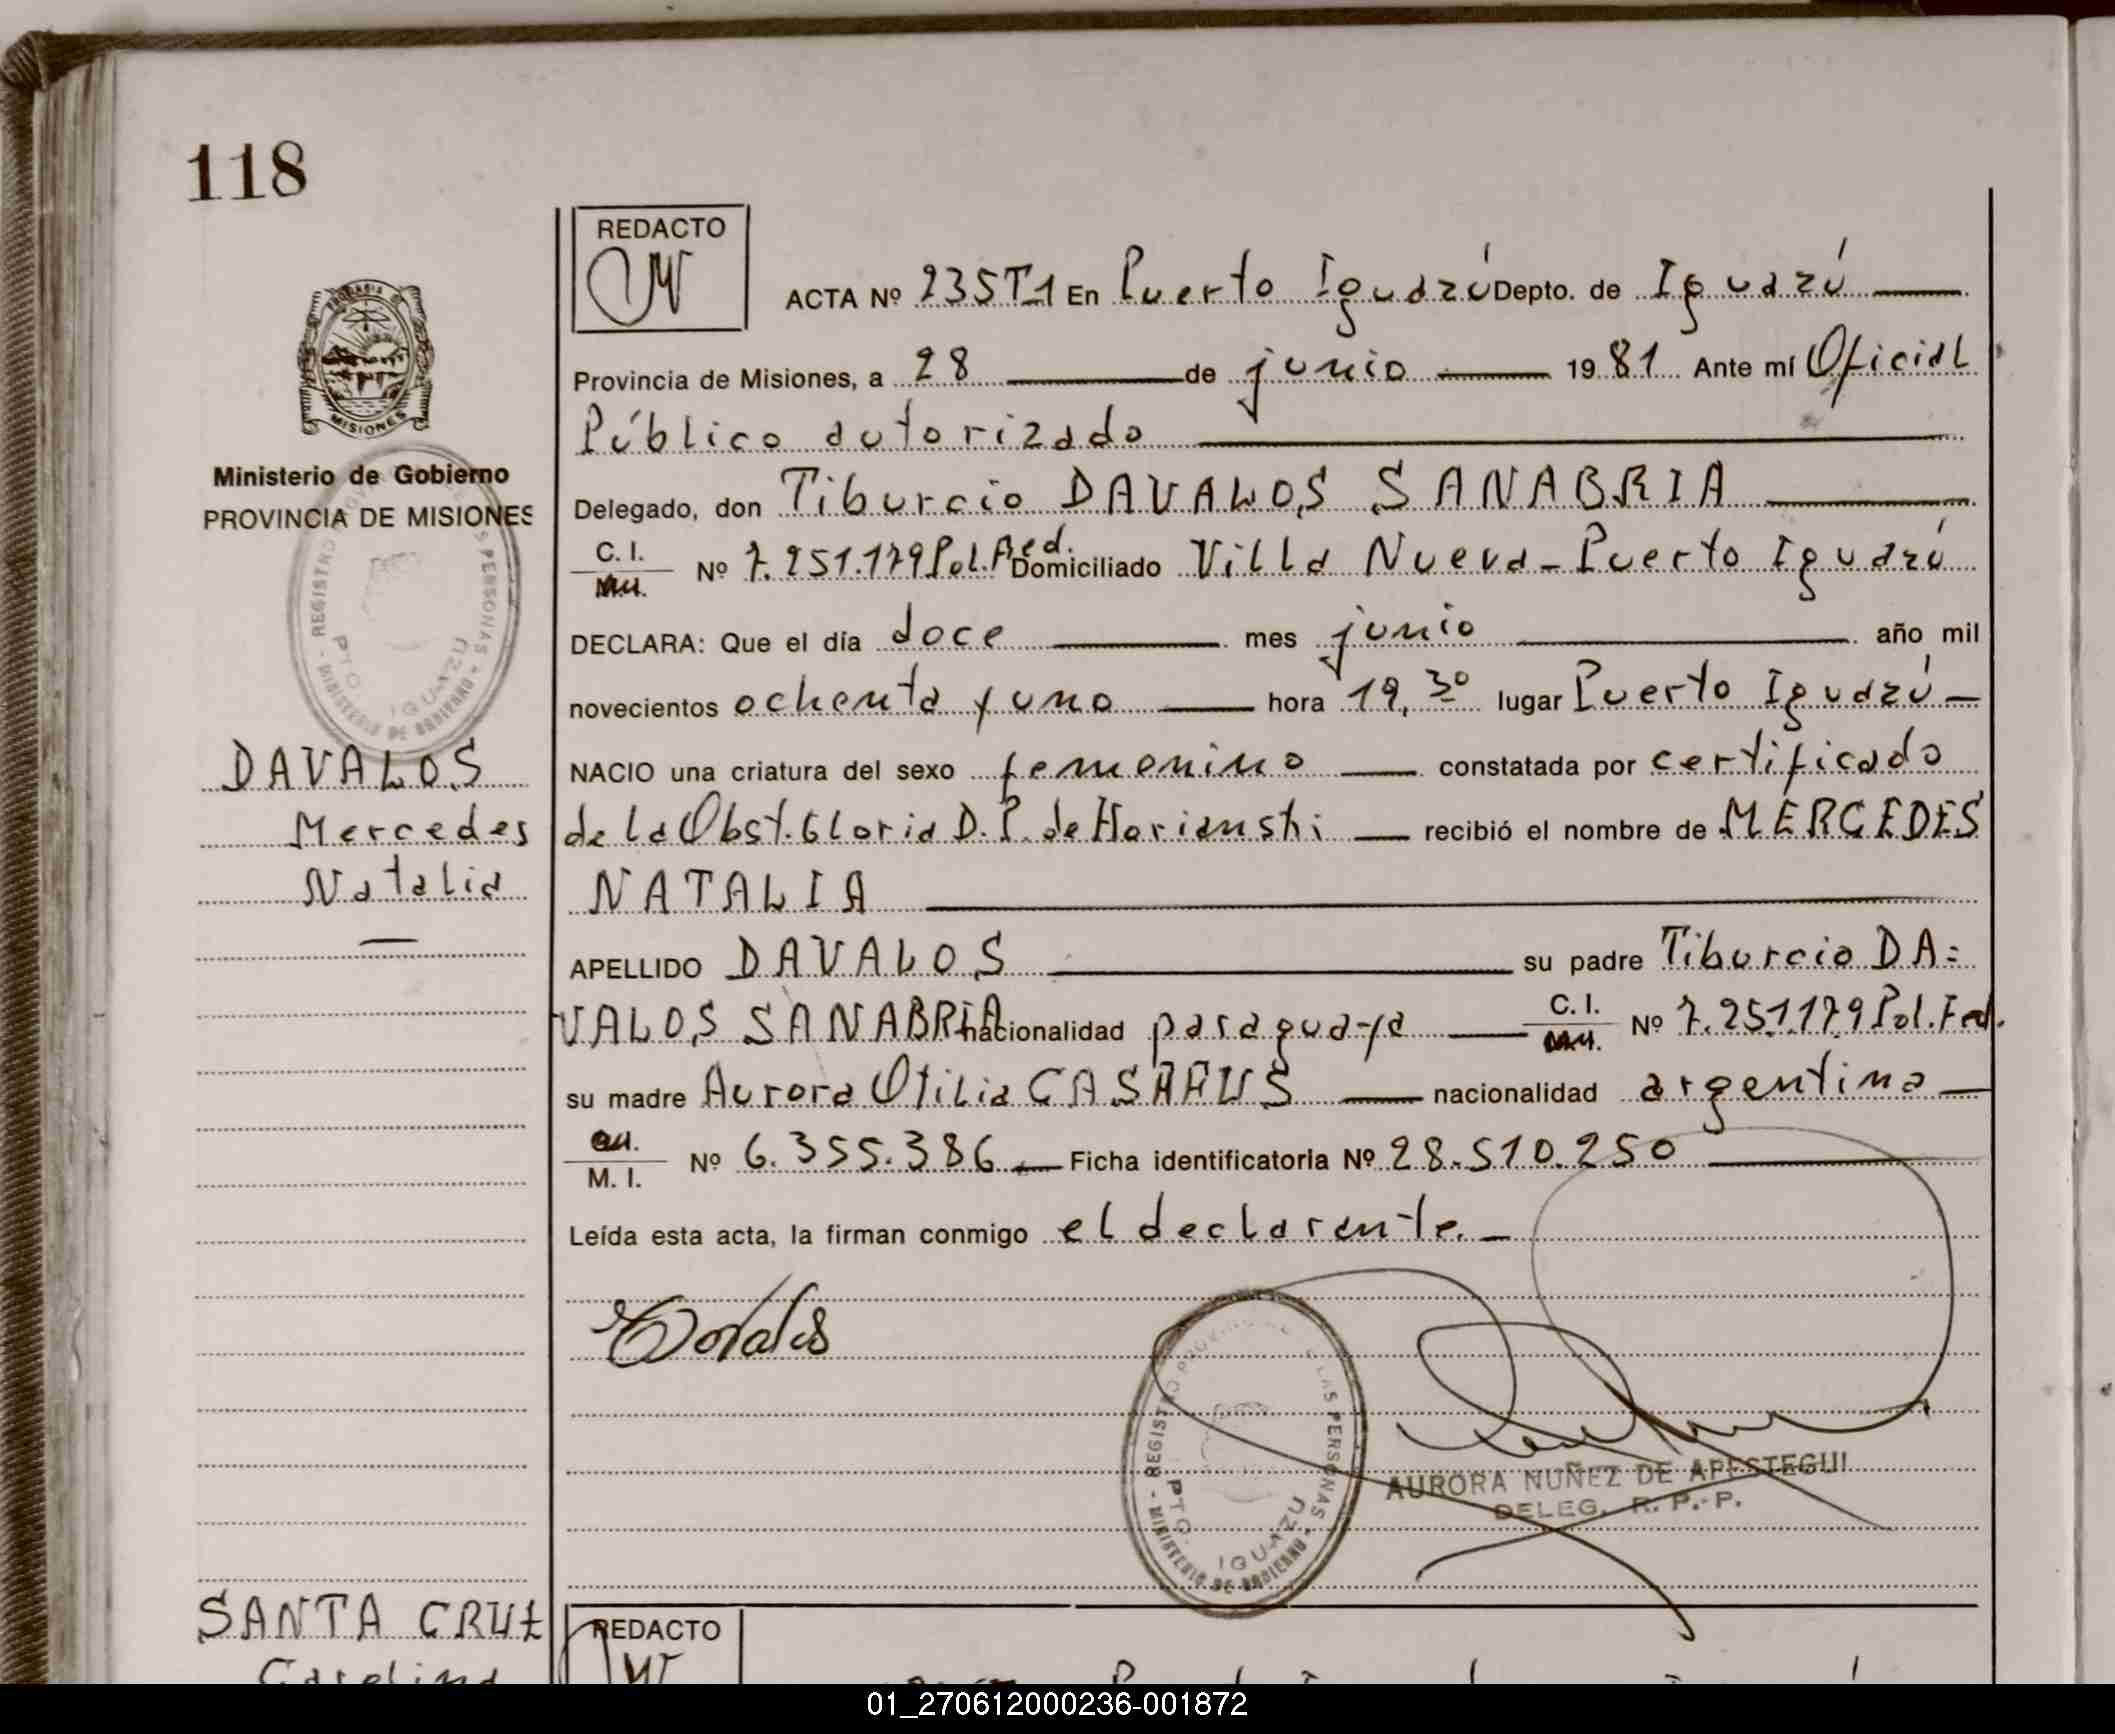 118
REDACTO
ACTA Nº 235T1 En Puerto Iguazú Depto. de Iguazú
Provincia de Misiones, a 28 de junio 1981 Ante mí Oficial
Público autorizado
Ministerio de Gobierno
PROVINCIA DE MISIONES
Delegado, don Tiburcio DAVALOS SANABRIA
C. I. Nº 7.251.179 Pol. Fed. Domiciliado Villa Nueva - Puerto Iguazú
DECLARA: Que el día doce mes junio año mil
novecientos ochenta y uno hora 19,30 lugar Puerto Iguazú
DAVALOS
Mercedes
Natalia
NACIO una criatura del sexo femenino constatada por certificado
de la Obst. Gloria D. P. de recibió el nombre de MERCEDES
NATALIA
APELLIDO DAVALOS su padre Tiburcio DA=
VALOS SANABRIA nacionalidad paraguaya C. I. Nº 7.251.179 Pol. Fed.
su madre Aurora Otilia nacionalidad argentina
M. I. Nº 6.355.386 Ficha identificatoria Nº 28.510.250
Leída esta acta, la firman conmigo el declarante.
REGISTRO PROVINCIAL DE LAS PERSONAS - MINISTERIO DE GOBIERNO
PTO. IGUAZU
AURORA NUÑEZ DE APESTEGUI
DELEG. R. P. P.
SANTA CRUZ
Carolina
REDACTO
01_270612000236-001872